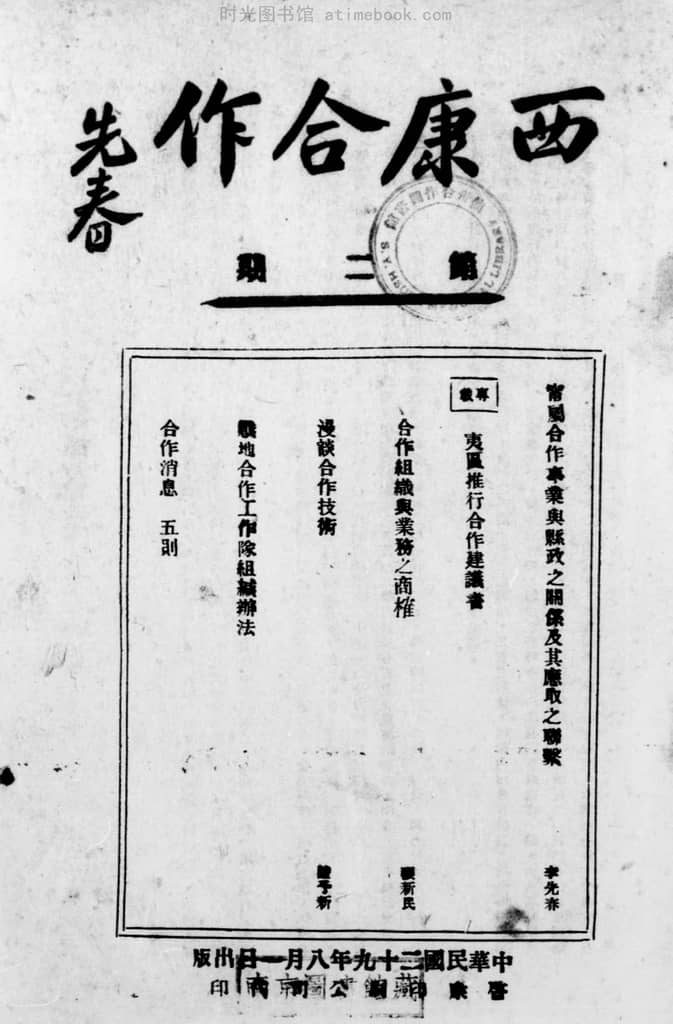 时光图书馆 atimebook.com
西康合作
先春
第二期
甯屬合作事業與縣政之關係及其應取之聯繫 李先春
專載
夷區推行合作建議書
合作組織與業務之商榷 新民
漫談合作技術 予新
戰地合作工作隊組織辦法
合作消息 五則
中華民國二十九年八月一日出版
印